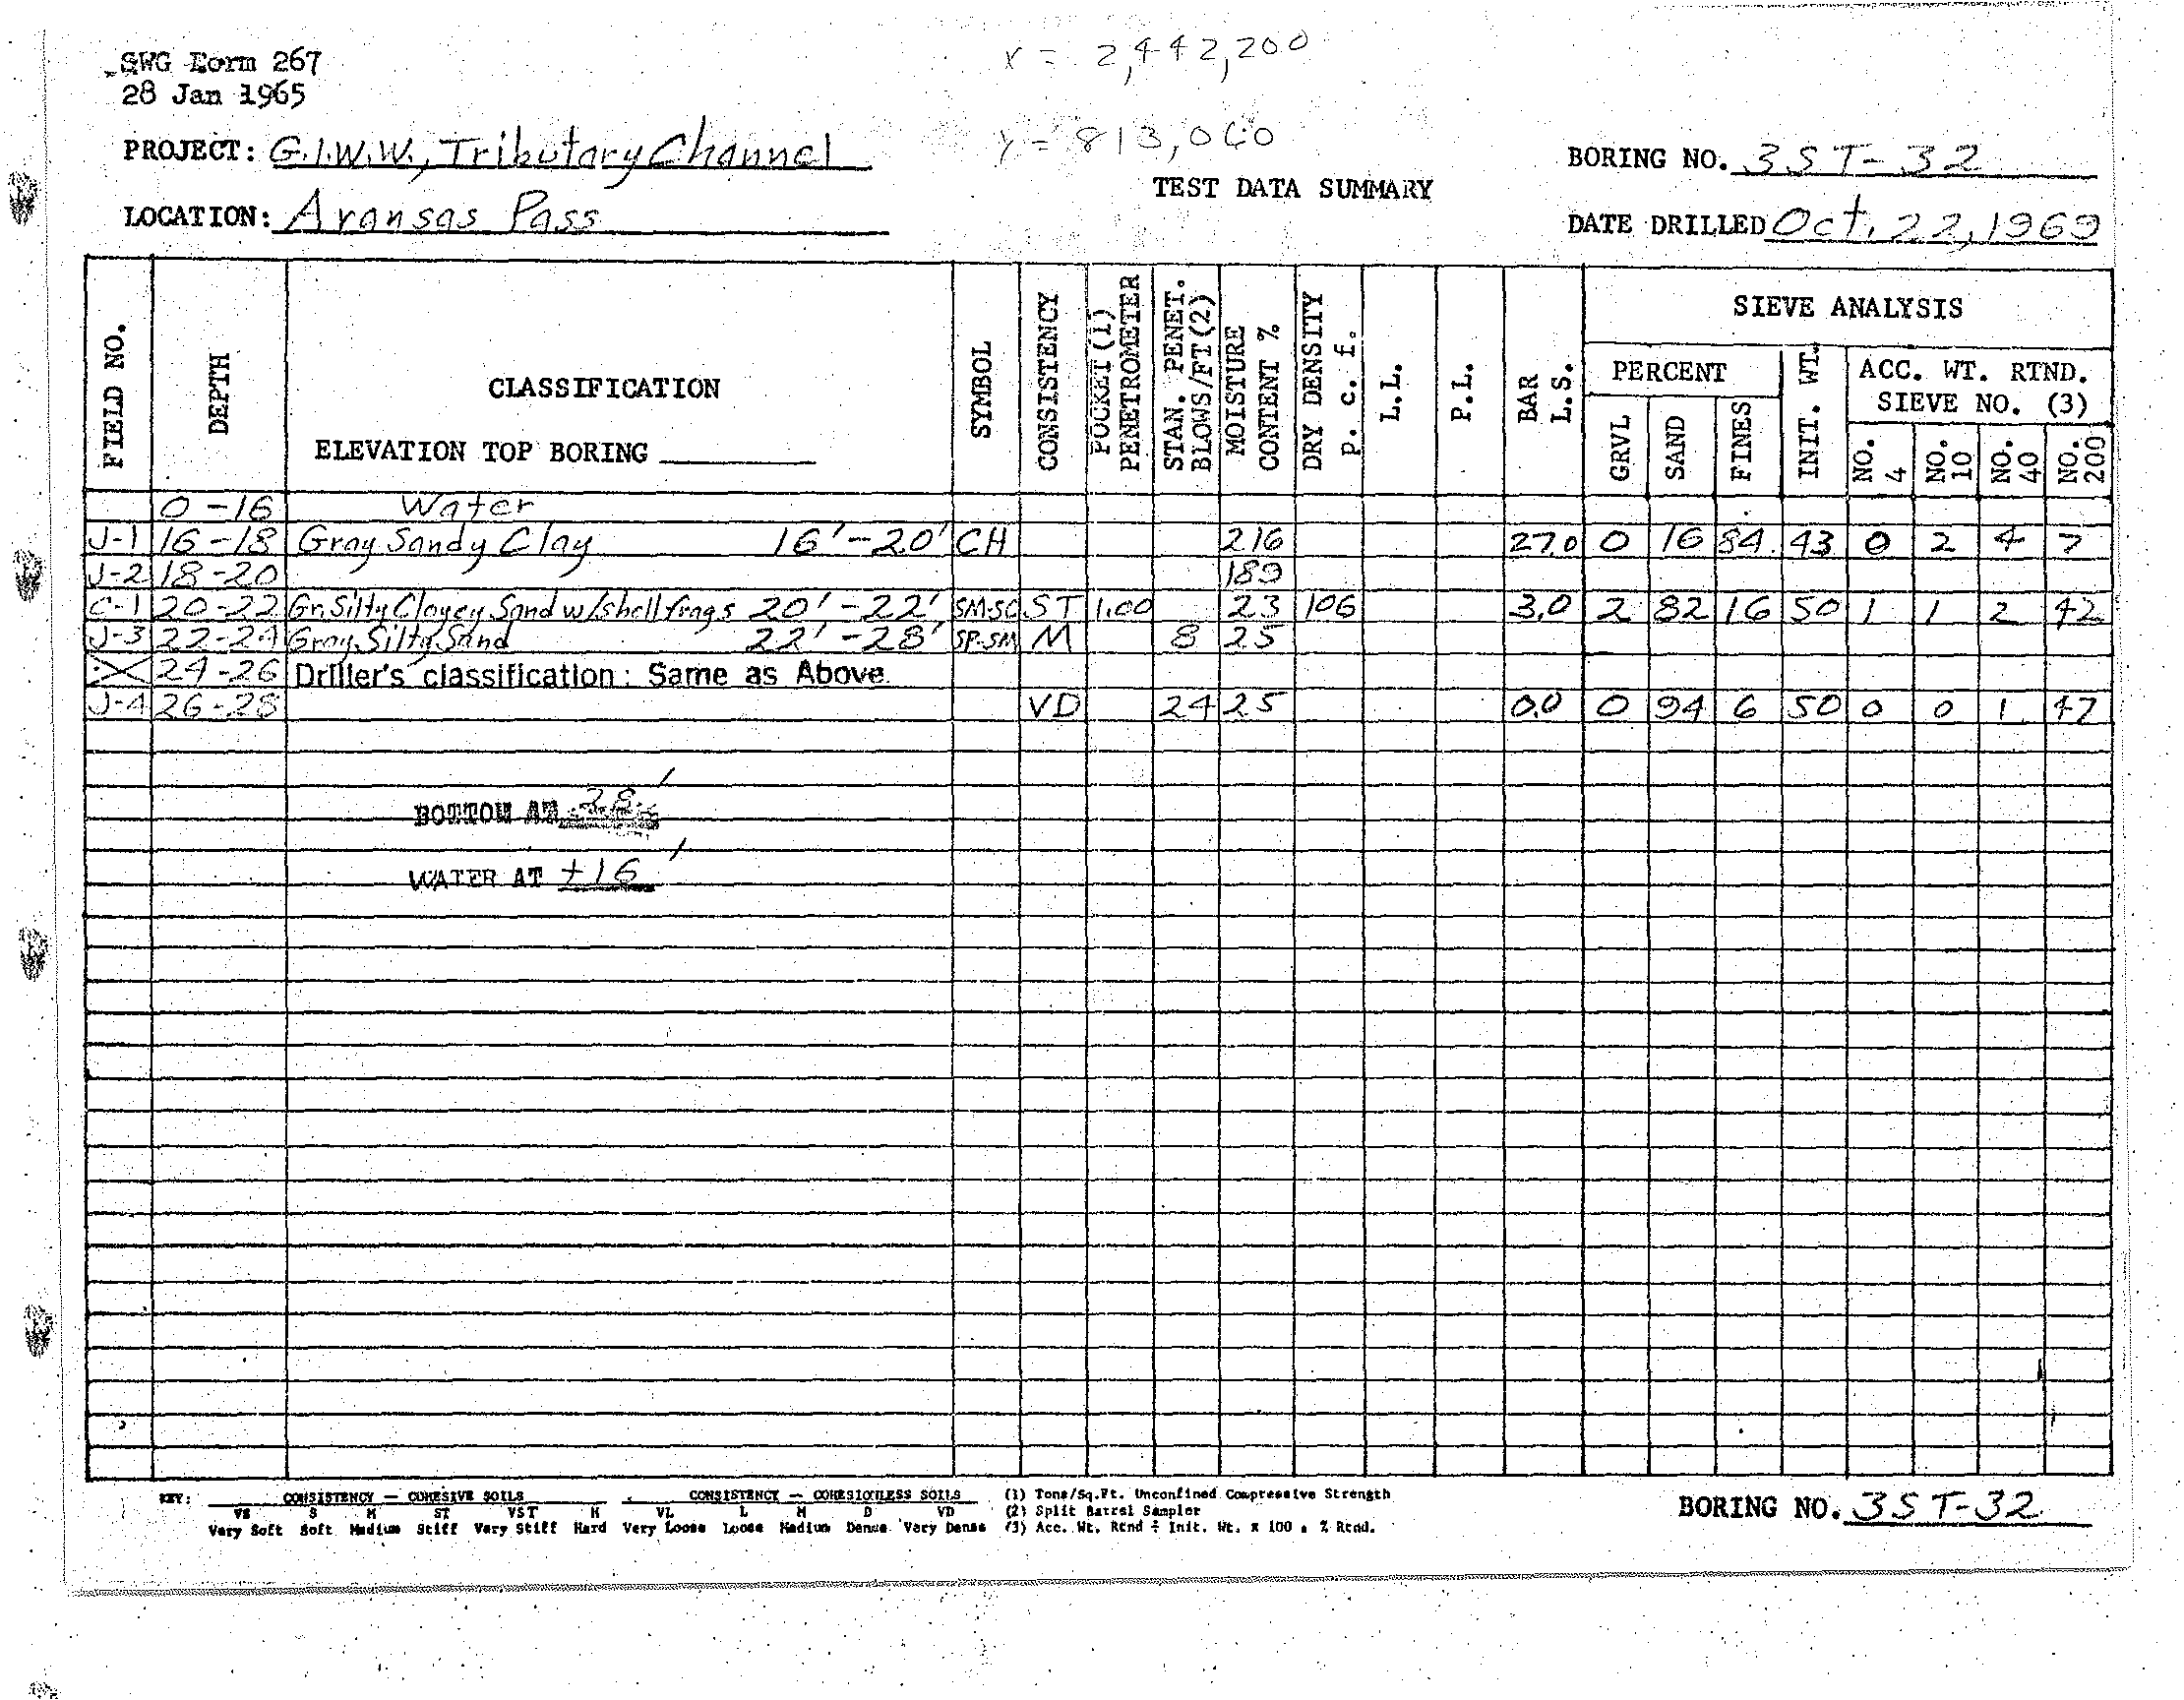 SWG Form 267
28 Jan 1965
x = 2,442,200
y = 813,000
PROJECT: G.I.W.W., Tributary Channel
LOCATION: Aransas Pass
TEST DATA SUMMARY
BORING NO. 3ST-32
DATE DRILLED Oct. 22, 1969
FIELD NO. DEPTH CLASSIFICATION SYMBOL CONSISTENCY POCKET (1) PENETROMETER STAN. PENET. BLOWS/FT (2) MOISTURE CONTENT % DRY DENSITY p. c. f. L.L. P.L. BAR L.S. SIEVE ANALYSIS
PERCENT INIT. WT. ACC. WT. RTND. SIEVE NO. (3)
ELEVATION TOP BORING
GRVL SAND FINES NO. 4 NO. 10 NO. 40 NO. 200
0-16 Water
J-1 16-18 Gray Sandy Clay 16'-20' CH 216 27.0 0 16 84 43 0 2 4 7
J-2 18-20 189
C-1 20-22 Gr. Silty Clayey Sand w/shell frags 20'-22' SM-SC ST 1.00 23 106 3.0 2 82 16 50 1 1 2 42
J-3 22-24 Gray Silty Sand 22'-28' SP-SM M 8 25
X 24-26 Driller's classification: Same as Above.
J-4 26-28 VD 24 25 0.0 0 94 6 50 0 0 1 47
BOTTOM AT 28'
WATER AT ±16'
KEY: CONSISTENCY — COHESIVE SOILS CONSISTENCY — COHESIONLESS SOILS (1) Tons/Sq.Ft. Unconfined Compressive Strength
VS S M ST VST H VL L M D VD (2) Split Barrel Sampler
Very Soft Soft Medium Stiff Very Stiff Hard Very Loose Loose Medium Dense Very Dense (3) Acc. Wt. Rtnd ÷ Init. Wt. x 100 = % Rtnd.
BORING NO. 3ST-32